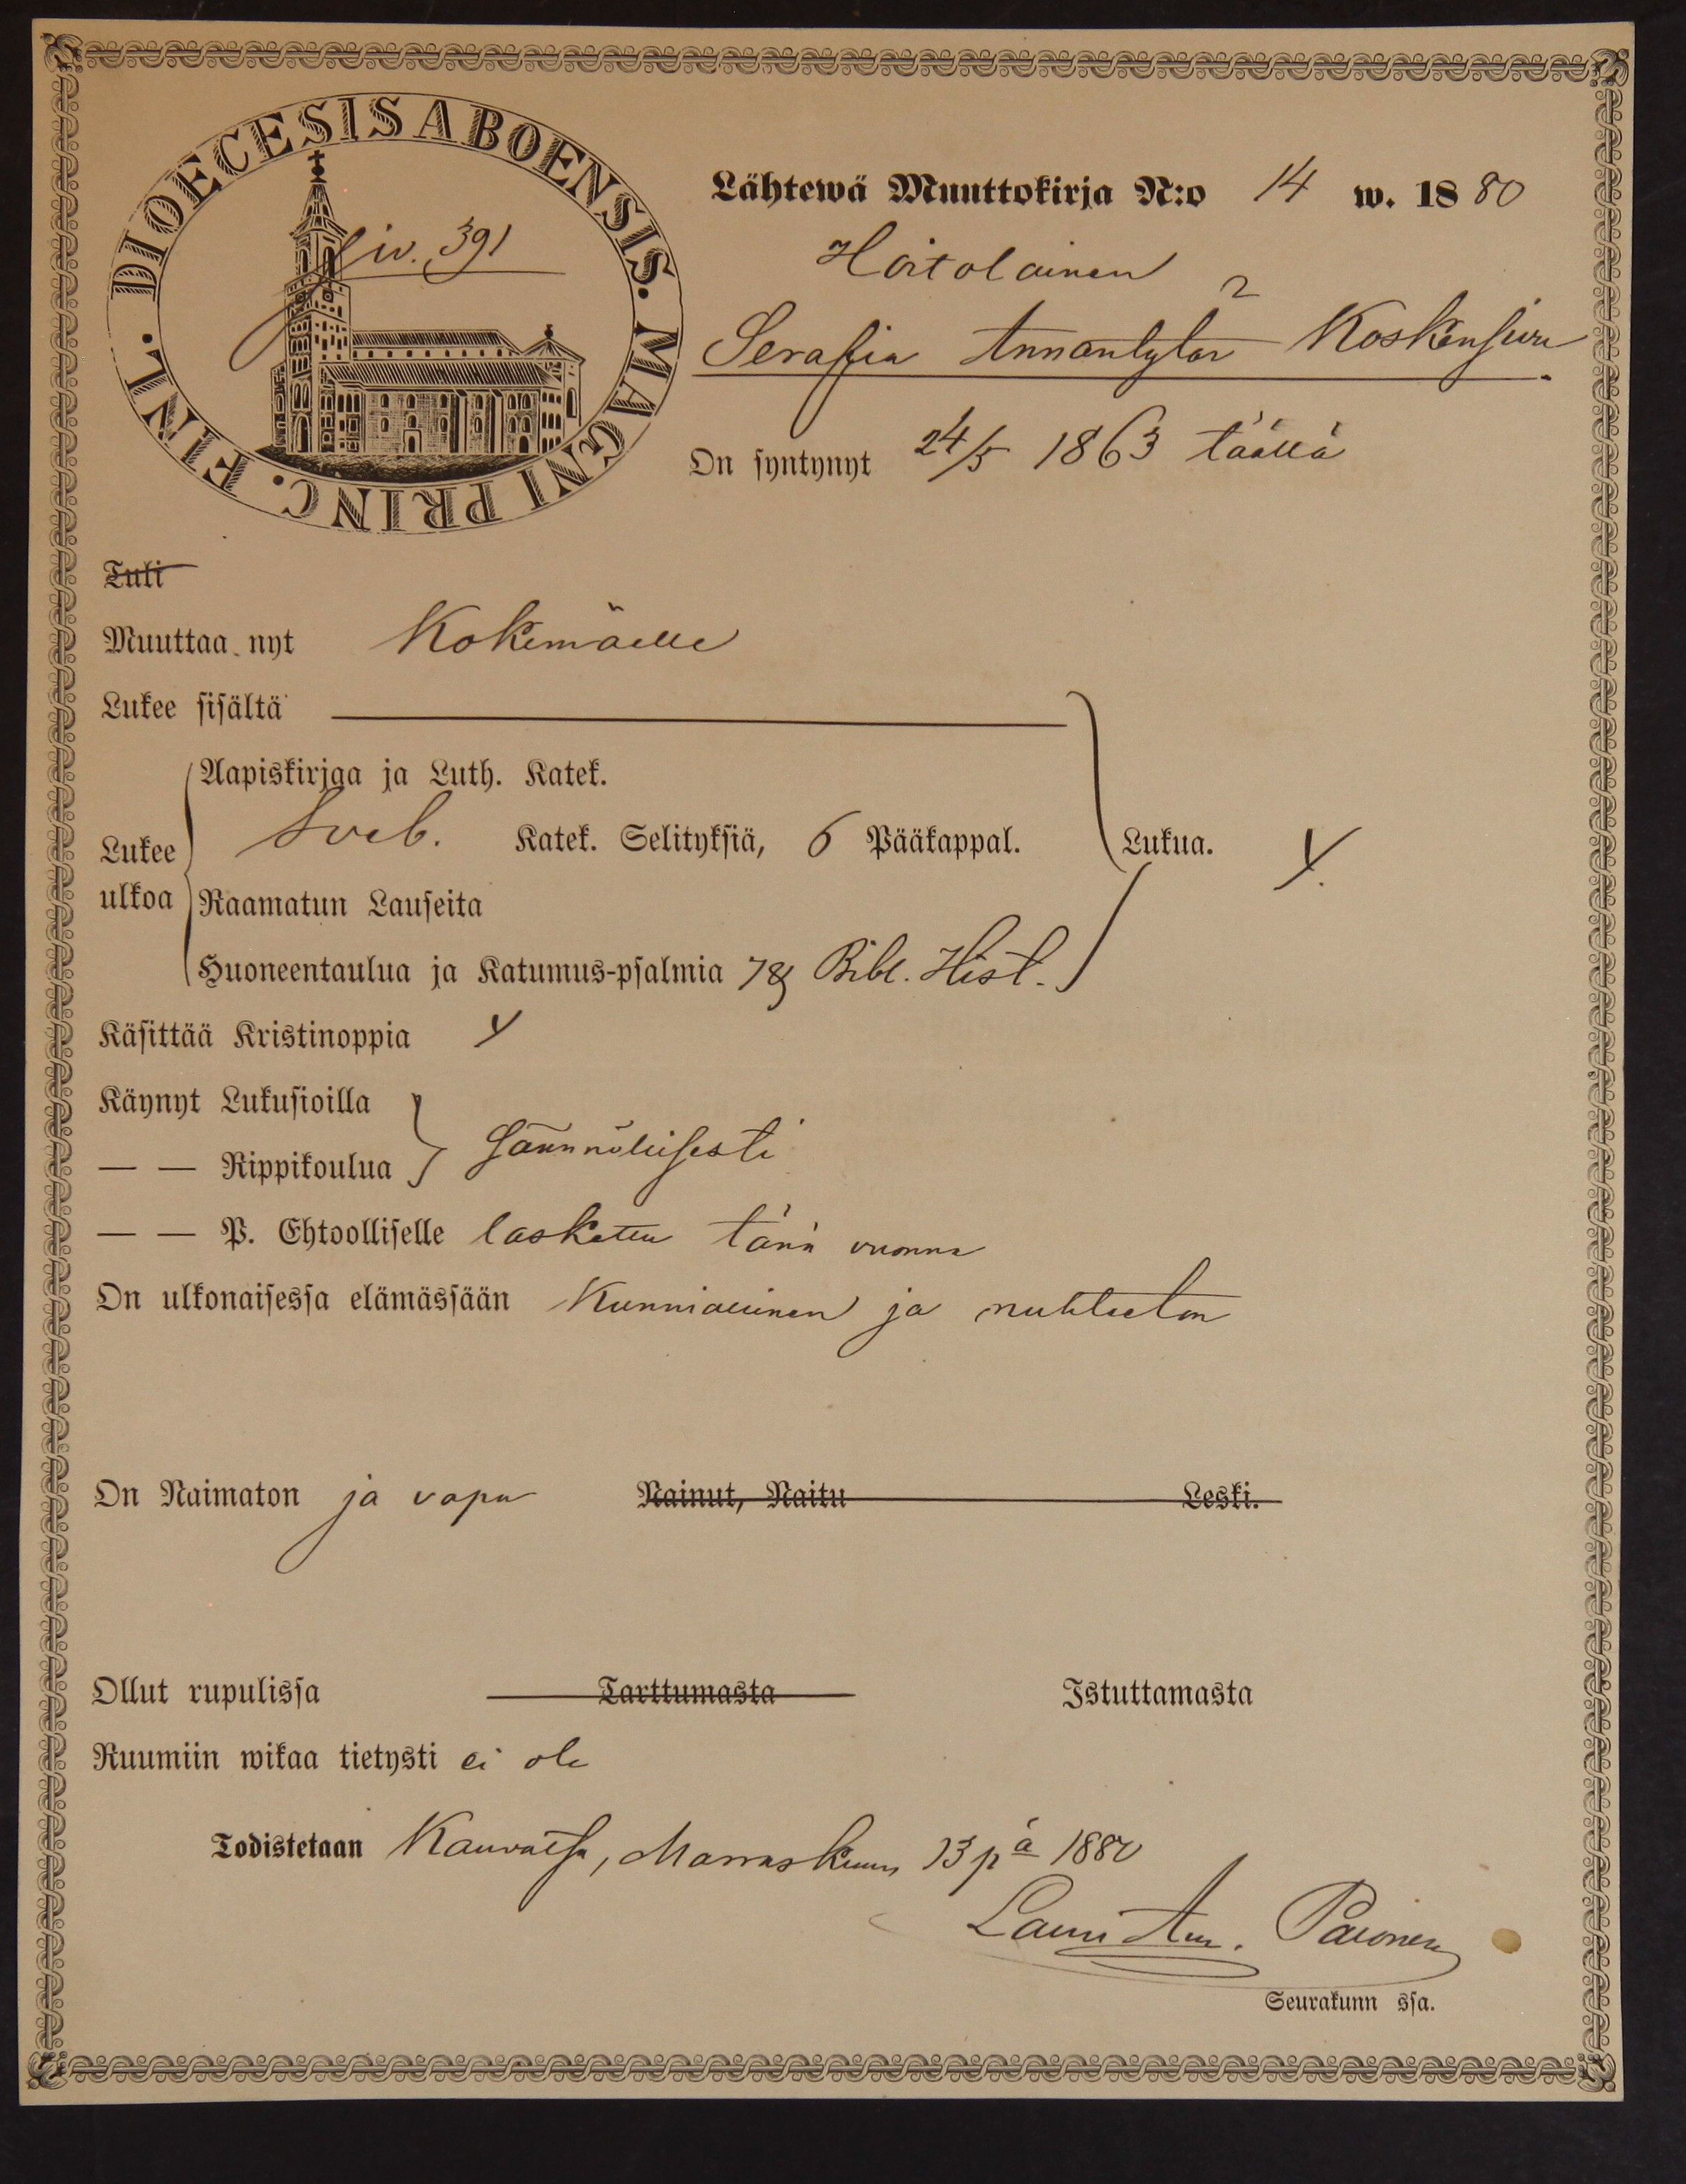 DIOECESIS ABOENSIS. MAGNI PRINC. FINL.
siv. 391
Lähtewä Muuttokirja N:o 14 w. 1880
Hoitolainen
Serafia Annantytär Koskensuu
On syntynyt 24/5 1863 täällä
Tuli
Muuttaa nyt Kokemäelle
Lukee sisältä
Aapiskirjaa ja Luth. Katek.
Lukee ulkoa Sveb. Katek. Selityksiä, 6 Pääkappal. Lukua. Y.
Raamatun Lauseita
Huoneentaulua ja Katumus-psalmia 7 & Bibl. Hist.
Käsittää Kristinoppia Y
Käynyt Lukusioilla
— — Rippikoulua säännöllisesti
— — P. Ehtoolliselle laskettu tänä vuonna
On ulkonaisessa elämässään Kunniallinen ja nuhteeton
On Naimaton ja vapa Nainut, Naitu Leski.
Ollut rupulissa Tarttumasta Istuttamasta
Ruumiin wikaa tietysti ei ole
Todistetaan Kauvatsa, Marraskuun 13 pä 1880
Lauri Paionen
Seurakunn ssa.